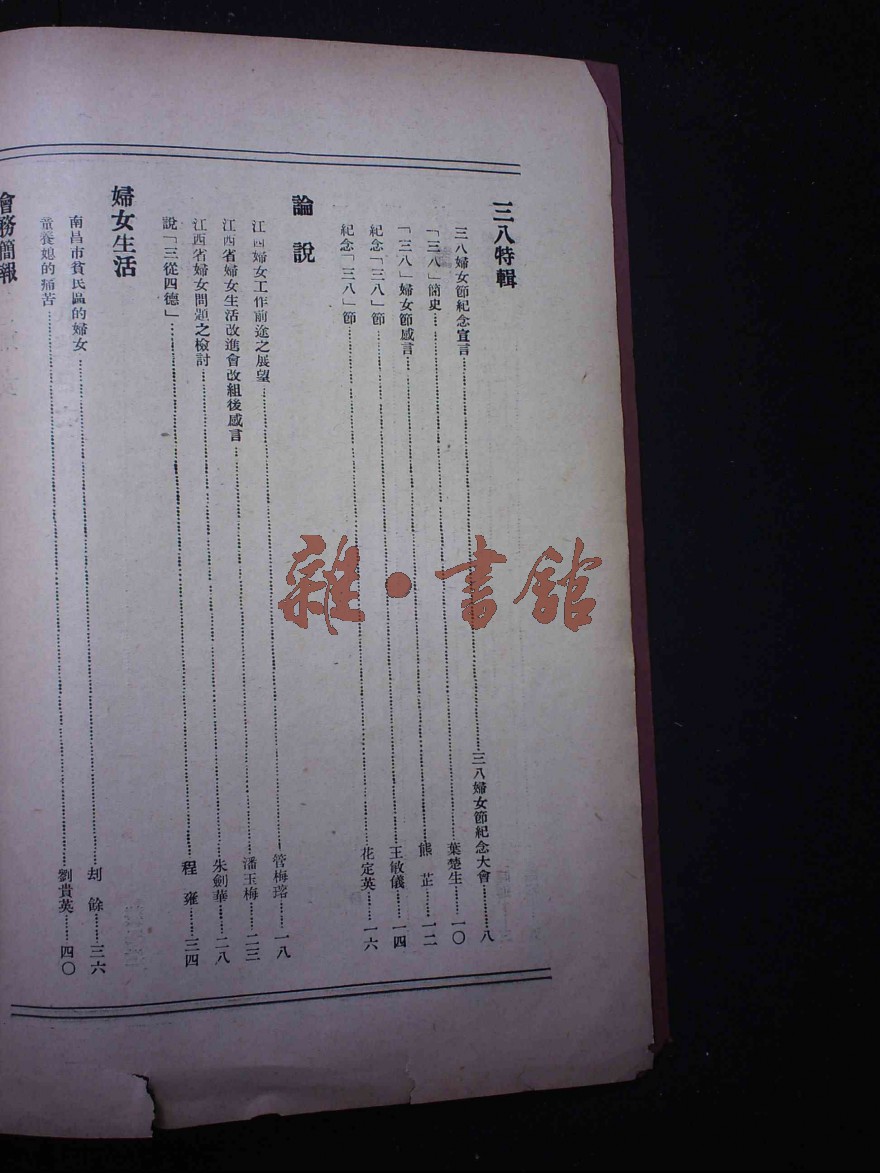 三八特輯
三八婦女節紀念宣言……三八婦女節紀念大會……八
「三八」簡史……葉楚生……一〇
「三八」婦女節感言……熊 芷……一二
紀念「三八」節……王敏儀……一四
紀念「三八」節……花定英……一六
論說
江西婦女工作前途之展望……管梅瑢……一八
江西省婦女生活改進會改組後感言……潘玉梅……二三
江西省婦女問題之檢討……朱劍華……二八
說「三從四德」……程 雍……三四
婦女生活
南昌市貧民區的婦女……刦 餘……三六
童養媳的痛苦……劉貴英……四〇
會務簡報
雜·書館